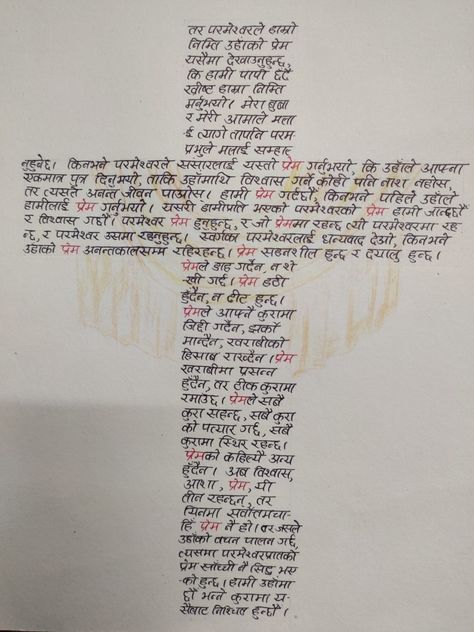 तर परमेश्वरले हाम्रो
निम्ति उहाँको प्रेम
यसैमा देखाउनुहुन्छ,
कि हामी पापी छँदै
ख्रीष्ट हाम्रा निम्ति
मर्नुभयो। मेरा बुबा
र मेरी आमाले मला-
ई त्यागे तापनि परम-
प्रभुले मलाई सम्हाल्
नुहुनेछ। किनभने परमेश्वरले संसारलाई यस्तो प्रेम गर्नुभयो, कि उहाँले आफ्ना
एकमात्र पुत्र दिनुभयो, ताकि उहाँमाथि विश्वास गर्ने कोही पनि नाश नहोस,
तर त्यसले अनन्त जीवन पाओस्। हामी प्रेम गर्दछौं, किनभने पहिले उहाँले
हामीलाई प्रेम गर्नुभयो। यसरी हामीप्रति भएको परमेश्वरको प्रेम हामी जान्दछौं
र विश्वास गर्छौं। परमेश्वर प्रेम हुनुहुन्छ, र जो प्रेममा रहन्छ त्यो परमेश्वरमा रह-
न्छ, र परमेश्वर उसमा रहनुहुन्छ। स्वर्गका परमेश्वरलाई धन्यवाद देओ, किनभने
उहाँको प्रेम अनन्तकालसम्म रहिरहन्छ। प्रेम सहनशील हुन्छ र दयालु हुन्छ।
प्रेमले डाह गर्दैन, न शे
खी गर्छ। प्रेम हठी
हुँदैन, न ढीट हुन्छ।
प्रेमले आफ्नै कुरामा
जिद्दी गर्दैन, झर्को
मान्दैन, खराबीको
हिसाब राख्दैन। प्रेम
खराबीमा प्रसन्न
हुँदैन, तर ठीक कुरामा
रमाउँछ। प्रेमले सबै
कुरा सहन्छ, सबै कुरा
को पत्यार गर्छ, सबै
कुरामा स्थिर रहन्छ।
प्रेमको कहिल्यै अन्त्य
हुँदैन। अब विश्वास,
आशा, प्रेम, यी
तीन रहन्छन्, तर
यिनमा सर्वोत्तमचा-
हिँ प्रेम नै हो। तर जसले
उहाँको वचन पालन गर्छ,
त्यसमा परमेश्वरप्रतिको
प्रेम साँच्ची नै सिद्ध भए
को हुन्छ। हामी उहाँमा
छौं भन्ने कुरामा य-
सैबाट निश्चित हुन्छौं।